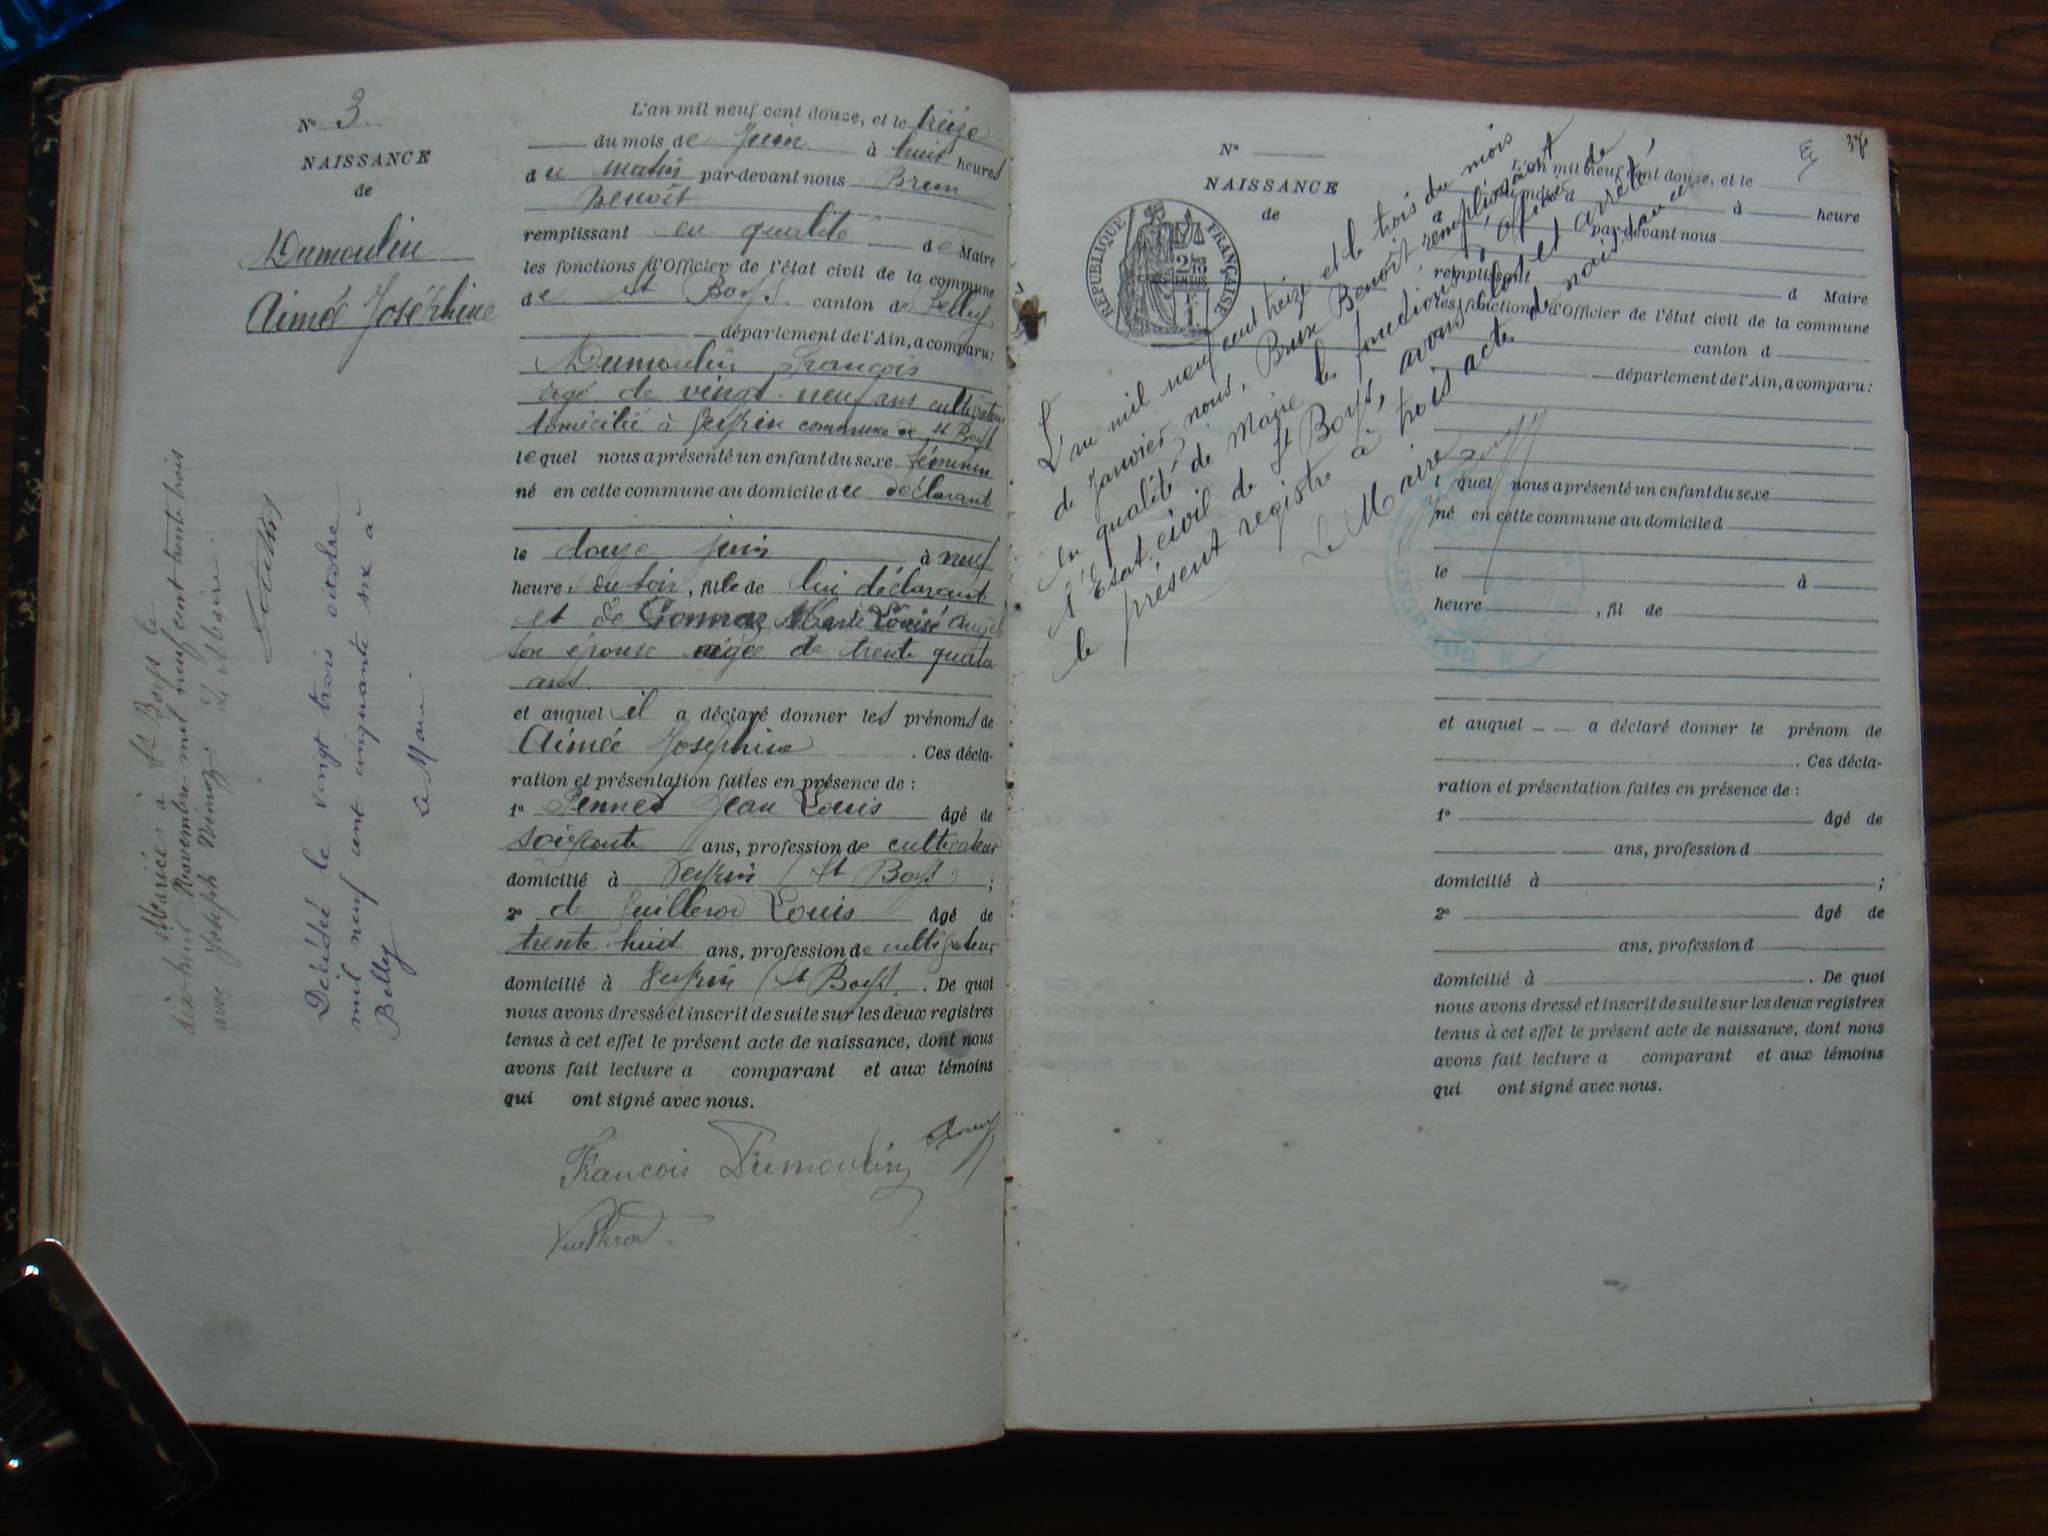 N° 3
NAISSANCE
de
Dumoulin
Aimée Joséphine
Mariée à St Boys le
dix-huit Novembre mil neuf cent trente trois
avec Joseph
Le Maire
Décédée le vingt trois octobre
mil neuf cent cinquante six à
Belley
Le Maire
L'an mil neuf cent douze, et le treize
du mois de Juin à huit heures
du matin par-devant nous Brun
Benoît
remplissant en qualité de Maire
les fonctions d'Officier de l'état civil de la commune
de St Boys canton de Belley
département de l'Ain, a comparu:
Dumoulin François
âgé de vingt-neuf ans cultivateur
domicilié à commune de St Boys
lequel nous a présenté un enfant du sexe féminin
né en cette commune au domicile du déclarant
le douze juin à neuf
heures du soir, fille de lui déclarant
et de Marie Louise
son épouse âgée de trente quatre
ans
et auquel il a déclaré donner les prénoms de
Aimée Joséphine . Ces décla-
ration et présentation faites en présence de :
1° Jean Louis âgé de
soixante ans, profession de cultivateur
domicilié à (St Boys) ;
2° de Louis âgé de
trente-huit ans, profession de cultivateur
domicilié à (St Boys. . De quoi
nous avons dressé et inscrit de suite sur les deux registres
tenus à cet effet le présent acte de naissance, dont nous
avons fait lecture a comparant et aux témoins
qui ont signé avec nous.
François Dumoulin
N°
NAISSANCE
de
RÉPUBLIQUE FRANÇAISE
L'an mil neuf cent treize et le trois du mois
de Janvier nous, Brun Benoît remplissant
en qualité de Maire les fonctions d'officier de
l'Etat civil de St Boys, avons clos et arrêté,
le présent registre à trois actes de naissance.
Le Maire
37
L'an mil neuf cent douze, et le
du mois d à heure
par-devant nous
remplissant d Maire
les fonctions d'Officier de l'état civil de la commune
canton d
département de l'Ain, a comparu:
l quel nous a présenté un enfant du sexe
né en cette commune au domicile d
le à
heure , fil de
et auquel a déclaré donner le prénom de
. Ces décla-
ration et présentation faites en présence de :
1° âgé de
ans, profession d
domicilié à ;
2° âgé de
ans, profession d
domicilié à . De quoi
nous avons dressé et inscrit de suite sur les deux registres
tenus à cet effet le présent acte de naissance, dont nous
avons fait lecture a comparant et aux témoins
qui ont signé avec nous.